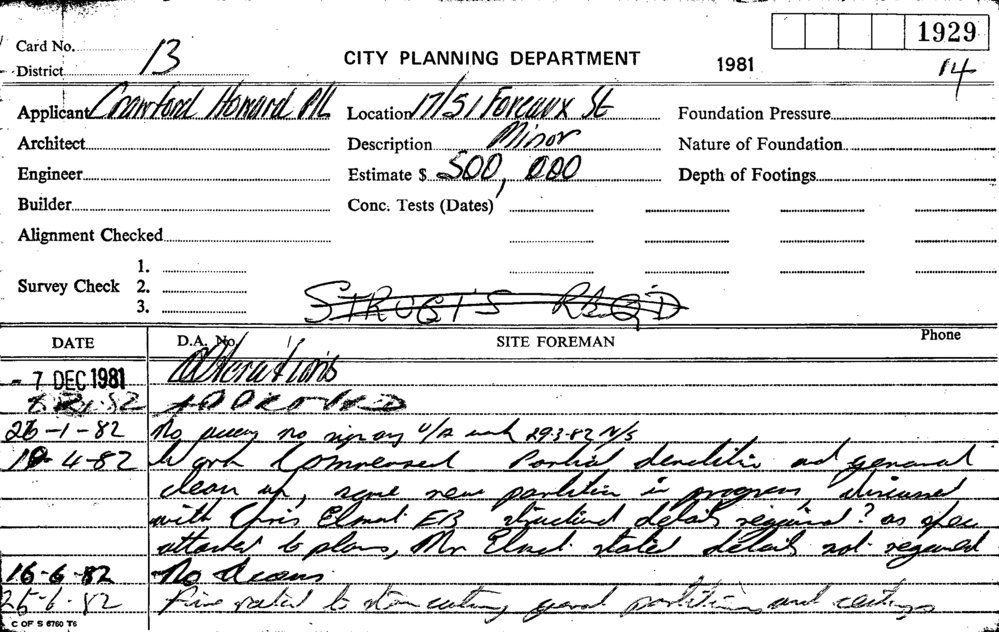 1929
Card No. 13
CITY PLANNING DEPARTMENT
1981
14
District
Applicant Crawford Howard P/L Location 17/51 Foveaux St Foundation Pressure
Architect Description Minor Nature of Foundation
Engineer Estimate $ 500,000 Depth of Footings
Builder Conc. Tests (Dates)
Alignment Checked
1.
Survey Check 2.
3.
STRUCT'S REQ'D
DATE D.A. No. SITE FOREMAN Phone
- 7 DEC 1981 Alterations
APPROVED
26-1-82 No no sign any work 29.3.82 N/S
4-82 Work Commenced Partial demolition and general
clean up, some new partition in progress, discussed
with Chris EB structural details required? as spec
attached to plans, Mr stated details not required
16-6-82 No
25-6-82 general partitions and ceilings
C OF S 6760 T6